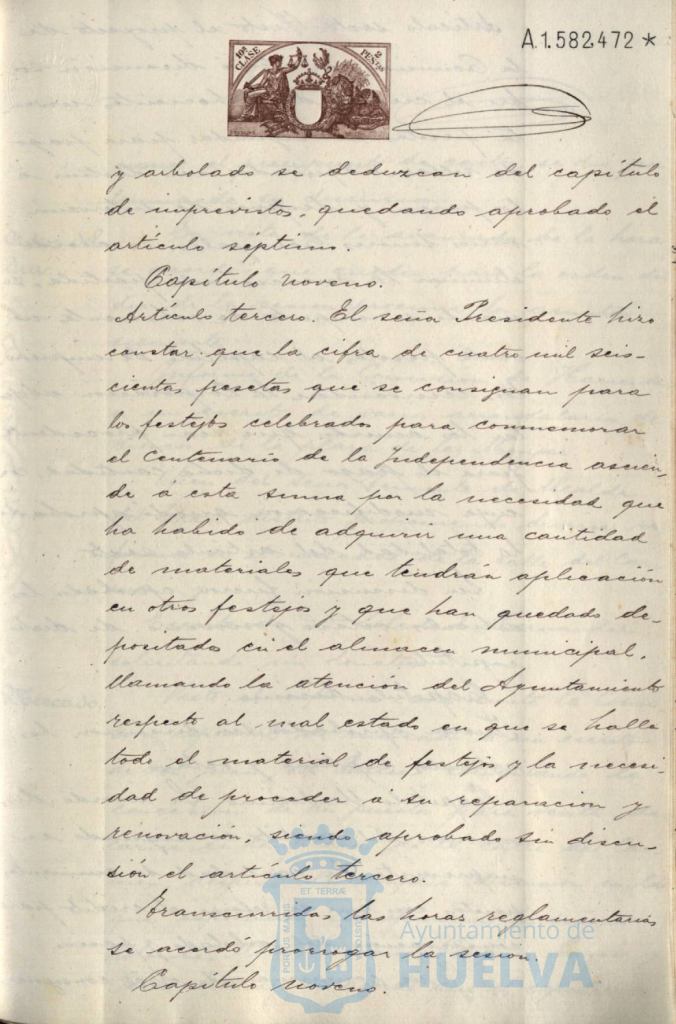 A.1.582.472 *
10ª CLASE
2 PESETAS
y arbolado se deduzcan del capítulo
de imprevistos, quedando aprobado el
artículo séptimo.
Capítulo noveno.
Artículo tercero. El señor Presidente hizo
constar que la cifra de cuatro mil seis-
cientas pesetas que se consignan para
los festejos celebrados para conmemorar
el Centenario de la Independencia ascien-
de á esta suma por la necesidad que
ha habido de adquirir una cantidad
de materiales que tendrán aplicación
en otros festejos y que han quedado de-
positados en el almacen municipal,
llamando la atención del Ayuntamiento
respecto al mal estado en que se halla
todo el material de festejos y la necesi-
dad de proceder á su reparacion y
renovación, siendo aprobado sin discu-
sión el artículo tercero.
Transcurridas las horas reglamentarias
se acordó prorrogar la sesión.
Capítulo noveno.
PORTUS MARIS
ET TERRÆ
CUSTODIA
Ayuntamiento de
HUELVA